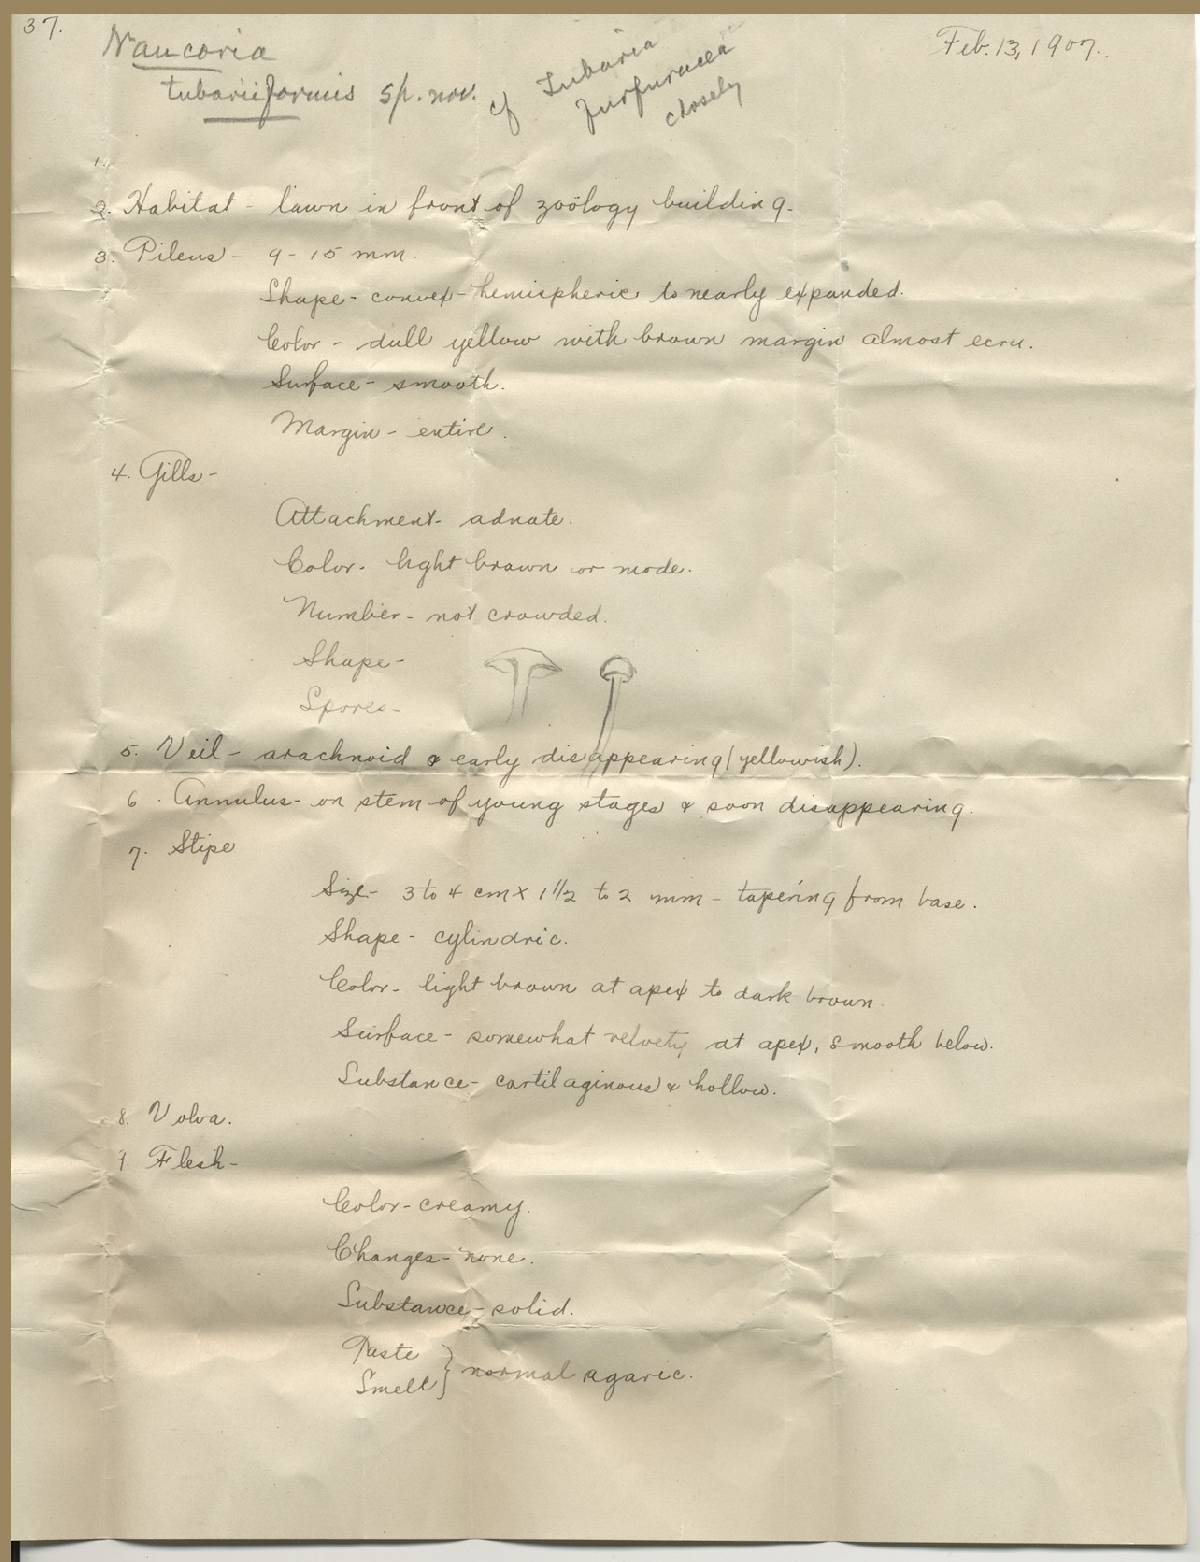 37.
Feb. 13, 1907.
Naucoria
tubariiformis sp. nov.
cf Tubaria
furfuracea
closely
1.
2. Habitat - lawn in front of zoölogy building.
3. Pileus - 9-15 mm.
Shape - convex - hemispheric to nearly expanded.
Color - dull yellow with brown margin almost ecru.
Surface - smooth.
Margin - entire.
4. Gills -
Attachment - adnate.
Color - light brown or mode.
Number - not crowded.
Shape -
Spores -
5. Veil - arachnoid & early disappearing (yellowish).
6. Annulus - on stem of young stages & soon disappearing.
7. Stipe
Size - 3 to 4 cm x 1 1/2 to 2 mm - tapering from base.
Shape - cylindric.
Color - light brown at apex to dark brown.
Surface - somewhat velvety at apex, smooth below.
Substance - cartilaginous & hollow.
8. Volva.
9 Flesh -
Color - creamy.
Changes - none.
Substance - solid.
Taste
Smell } normal agaric.